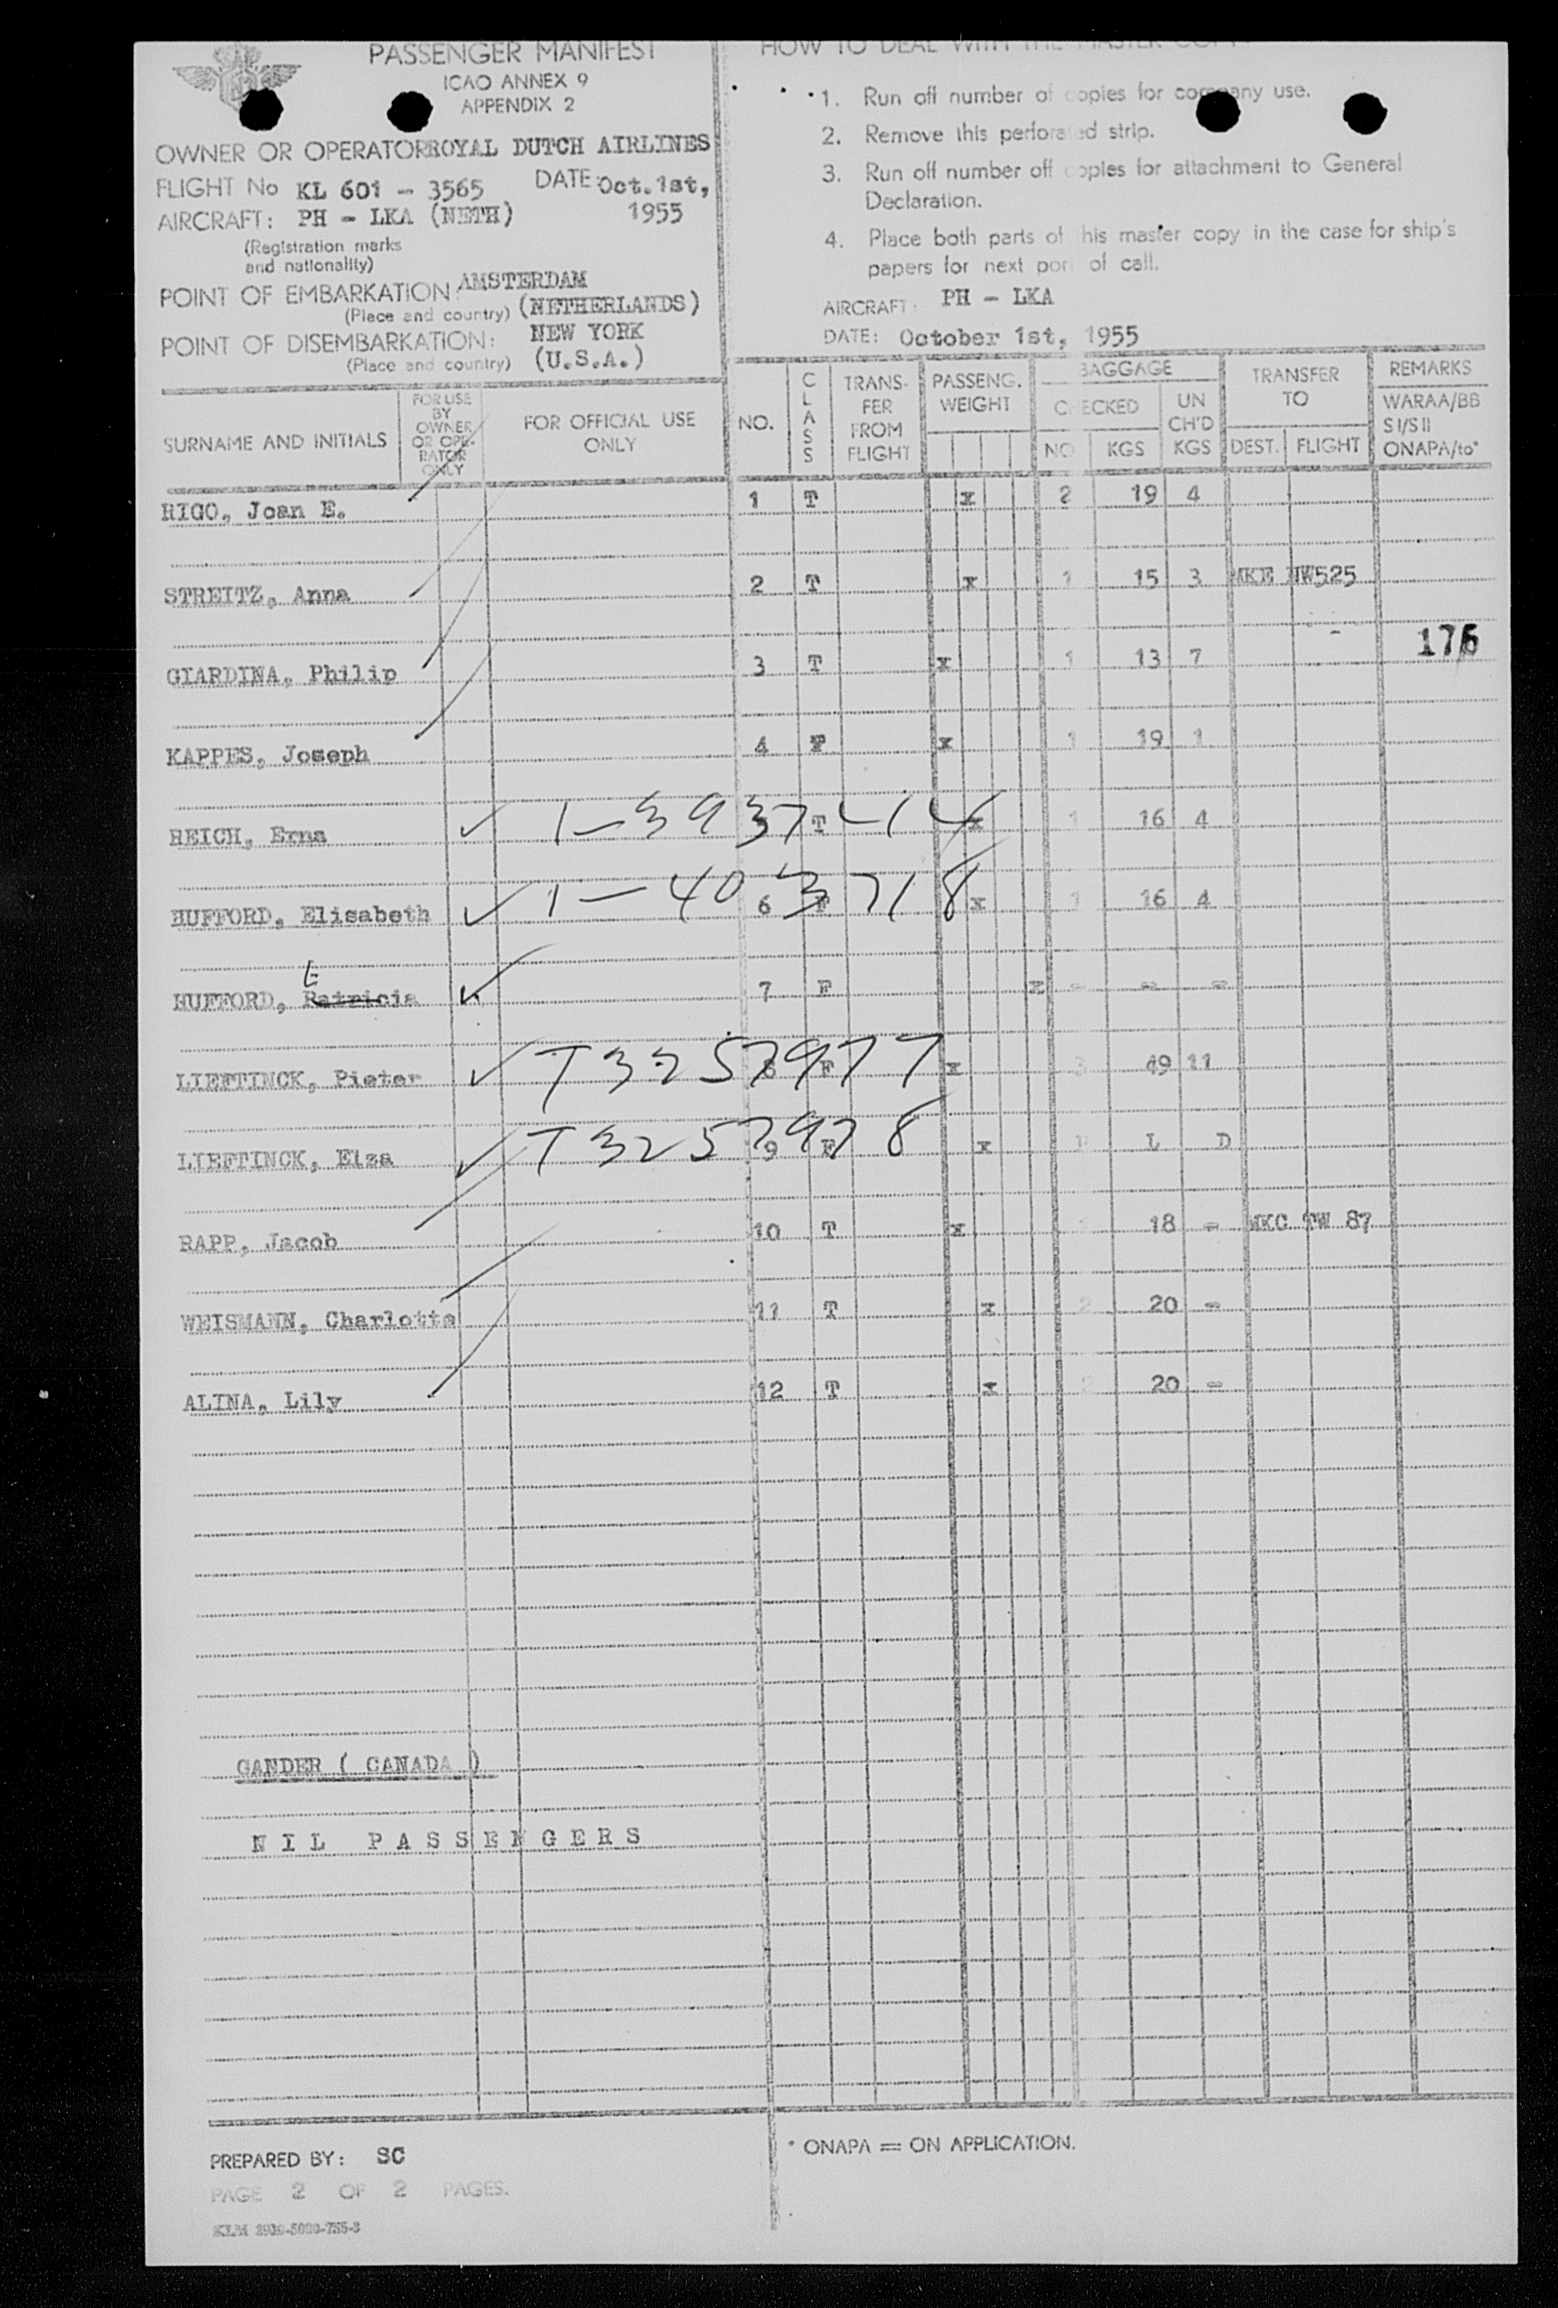 PASSENGER MANIFEST
ICAO ANNEX 9
APPENDIX 2
OWNER OR OPERATOR ROYAL DUTCH AIRLINES
FLIGHT No KL 601 - 3565 DATE: Oct. 1st,
AIRCRAFT: PH - LKA (NETH) 1955
(Registration marks
and nationality)
POINT OF EMBARKATION: AMSTERDAM
(Place and country) (NETHERLANDS)
POINT OF DISEMBARKATION: NEW YORK
(Place and country) (U.S.A.)
HOW TO DEAL WITH THE MASTER COPY
1. Run off number of copies for company use.
2. Remove this perforated strip.
3. Run off number off copies for attachment to General
Declaration.
4. Place both parts of this master copy in the case for ship's
papers for next port of call.
AIRCRAFT: PH - LKA
DATE: October 1st, 1955
SURNAME AND INITIALS FOR USE BY OWNER OR OPE-RATOR ONLY FOR OFFICIAL USE ONLY NO. CLASS TRANS-FER FROM FLIGHT PASSENG. WEIGHT BAGGAGE CHECKED NO KGS UN CH'D KGS TRANSFER TO DEST. FLIGHT REMARKS WARAA/BB SI/SII ONAPA/to*
RIGO, Joan E. 1 T x 2 19 4
STREITZ, Anna 2 T x 1 15 3 MKE NW525
176
GIARDINA, Philip 3 T x 1 13 7
KAPPES, Joseph 4 F x 1 19 1
REICH, Erna ✓ 1-3937414 T x 1 16 4
HUFFORD, Elisabeth ✓ 1-4053718 6 F x 1 16 4
HUFFORD, Patricia ✓ 7 F x - - -
LIEFTINCK, Pieter ✓ T3257977 8 F x 3 49 11
LIEFTINCK, Elza ✓ T3257978 9 F x P L D
RAPP, Jacob 10 T x 1 18 - MKC TW 87
WEISMANN, Charlotte 11 T x 2 20 -
ALINA, Lily 12 T x 2 20 -
GANDER ( CANADA )
NIL PASSENGERS
PREPARED BY: SC
* ONAPA = ON APPLICATION.
PAGE 2 OF 2 PAGES.